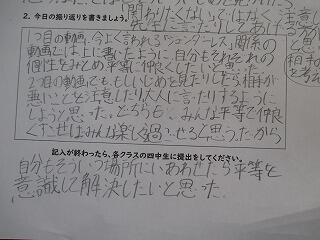 2. 今日の振り返りを書きましょう。
1つ目の動画、今よく言われる「ジェンダーレス」関係の
動画では上に書いたように、自分もそれぞれの
個性をみとめ平等に仲良くしたいと思い、
2つ目の動画でも、もしいじめを見たりしたら相手が
悪いことを注意したり大人に言ったりするように
しようと思った。どちらも、みんな平等で仲良
くだせばみんな楽しく過ごせると思うたから
記入が終わったら、各クラスの四中生に提出をしてください。
自分もそういう場所にいあわせたら平等を
意識して解決したいと思った。